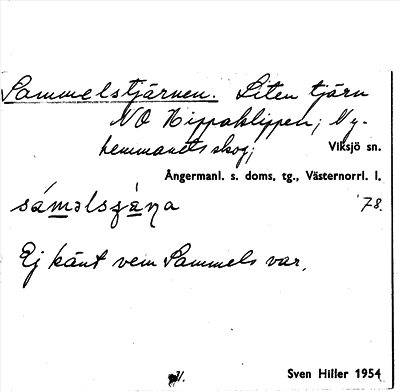 Sammelstjärnen. Liten tjärn
NO Hippaklippen; Ny-
hemmanets skog; Viksjö sn.
Ångermanl. s. doms. tg., Västernorrl. l.
'78.
Ej känt vem Sammels var.
Sven Hiller 1954